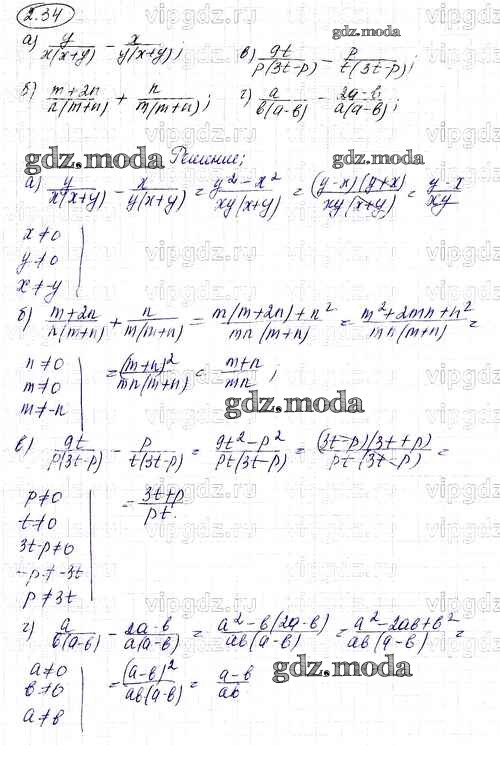 2.34
gdz.moda
а) y/x(x+y) - x/y(x+y); в) 9t/p(3t-p) - p/t(3t-p);
б) m+2n/n(m+n) + n/m(m+n); г) a/b(a-b) - 2a-b/a(a-b);
gdz.moda Решение; gdz.moda
а) y/x(x+y) - x/y(x+y) = y²-x²/xy(x+y) = (y-x)(y+x)/xy(x+y) = y-x/xy
x≠0
y≠0
x≠-y
б) m+2n/n(m+n) + n/m(m+n) = m(m+2n)+n²/mn(m+n) = m²+2mn+n²/mn(m+n) =
n≠0 = (m+n)²/mn(m+n) = m+n/mn;
m≠0
m≠-n
gdz.moda
в) 9t/p(3t-p) - p/t(3t-p) = 9t²-p²/pt(3t-p) = (3t-p)(3t+p)/pt(3t-p) =
p≠0 = 3t+p/pt
t≠0
3t-p≠0
-p≠-3t
p≠3t
г) a/b(a-b) - 2a-b/a(a-b) = a²-b(2a-b)/ab(a-b) = a²-2ab+b²/ab(a-b) =
a≠0 = (a-b)²/ab(a-b) = a-b/ab
b≠0
a≠b
gdz.moda
vipgdz.com